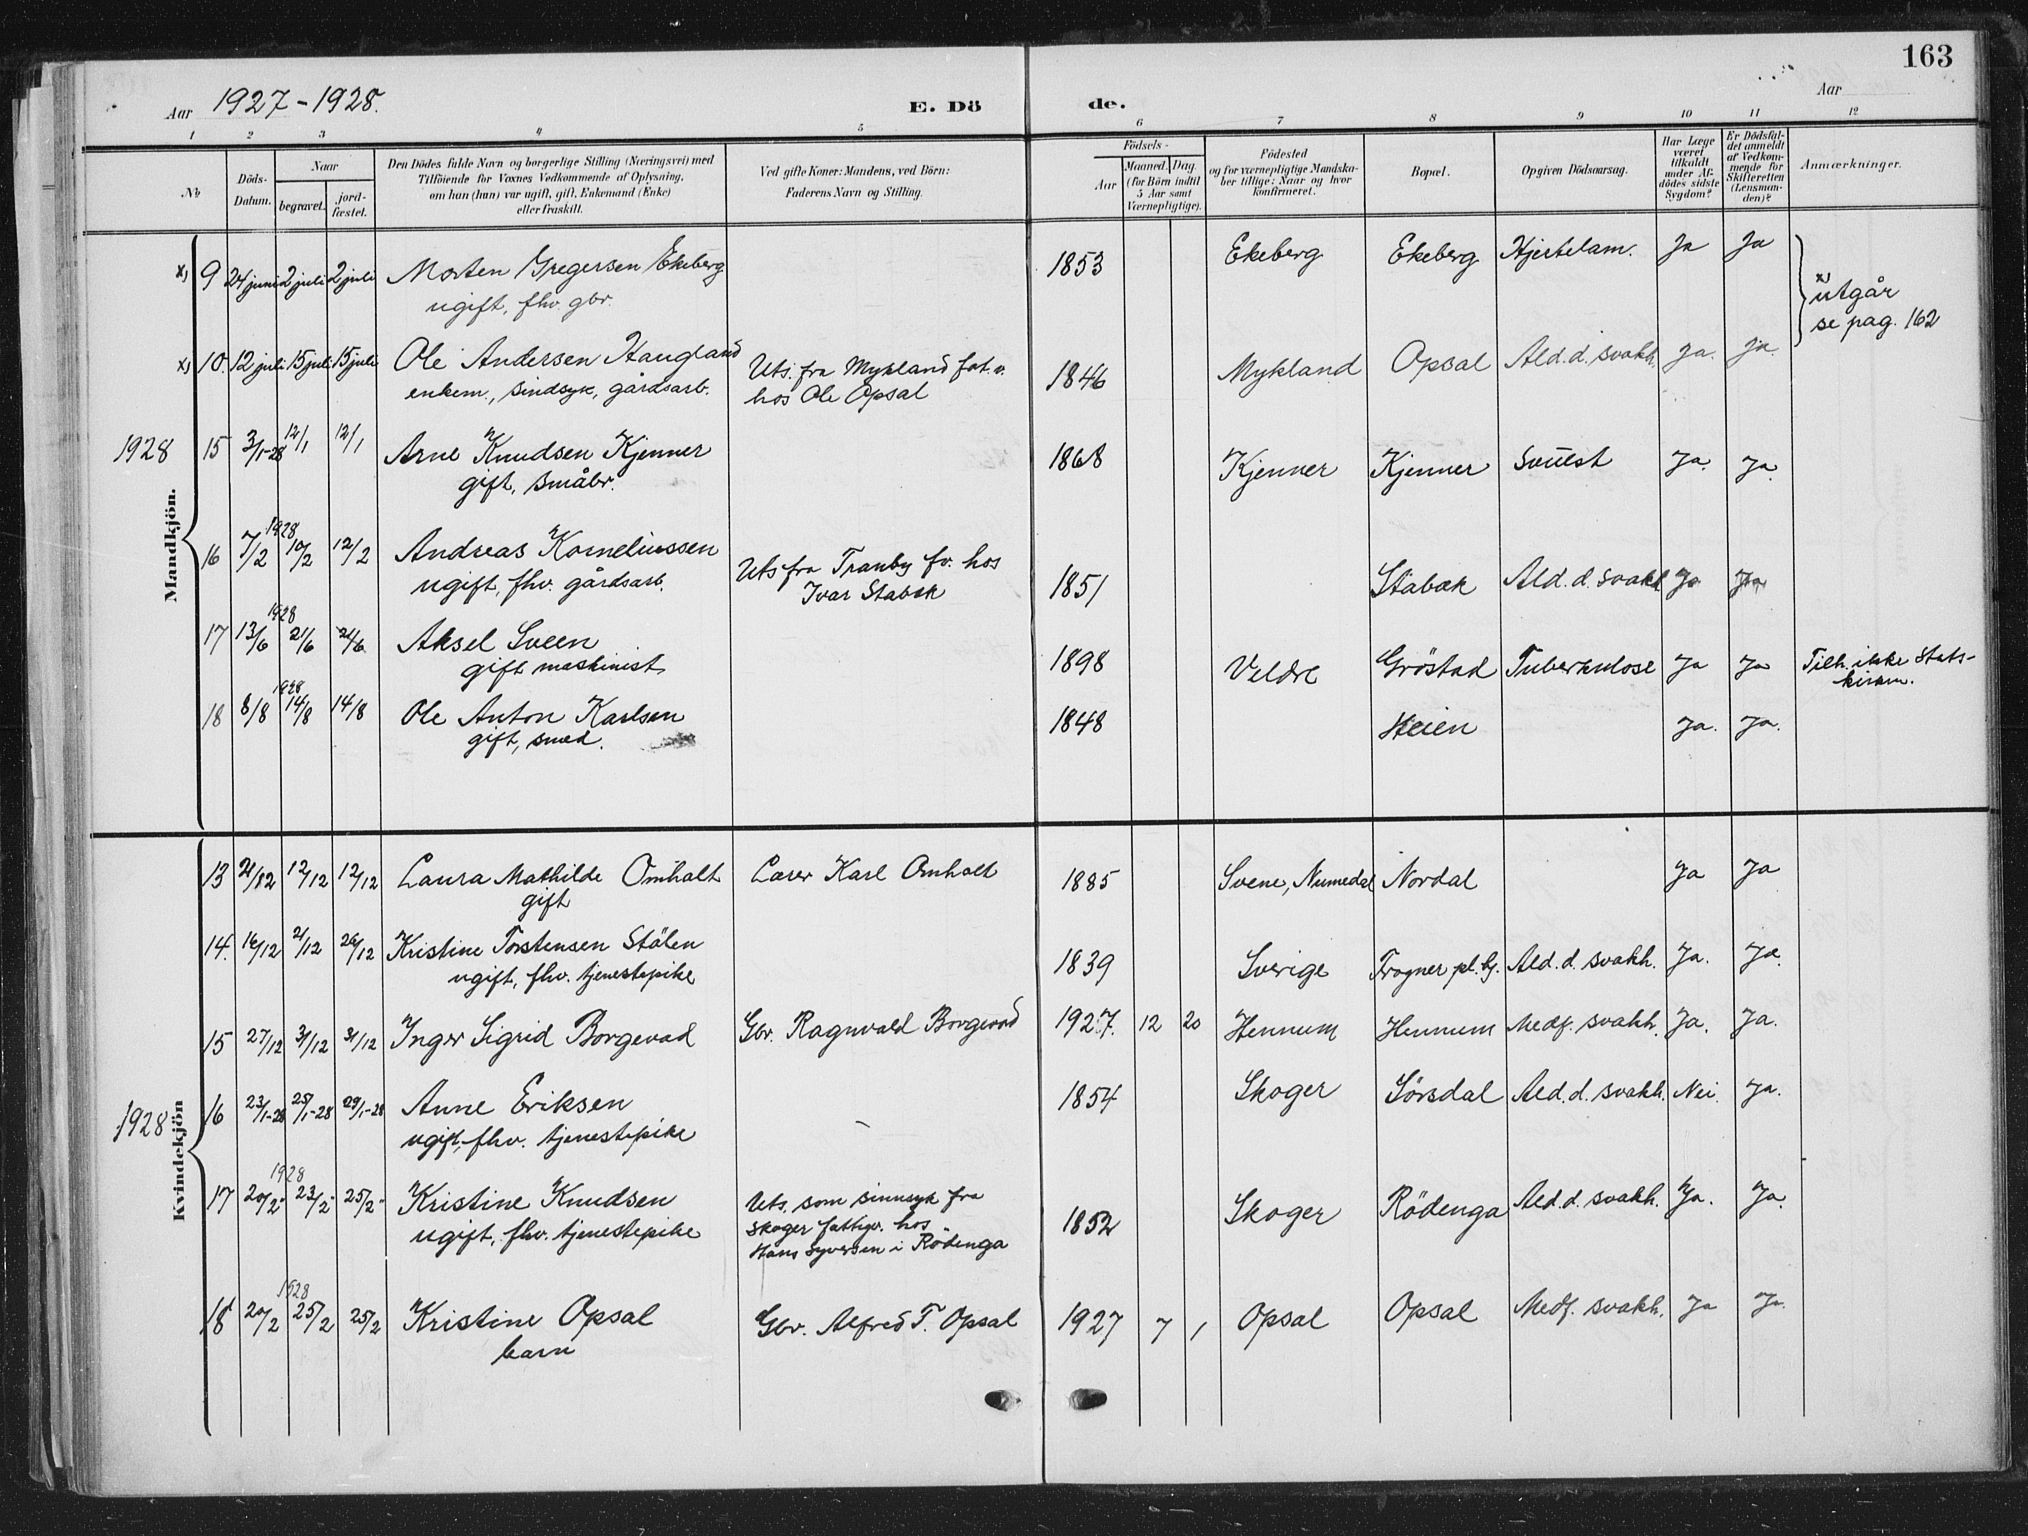 163
Aar 1927-1928. E. Dö de. Aar
1 2 3 4 5 6 7 8 9 10 11 12
No. Döds-Datum. Naar begravet. jord-fæstet. Den Dödes fulde Navn og borgerlige Stilling (Næringsvei) med Tilföiende for Voxnes Vedkommende af Oplysning, om han (hun) var ugift, gift, Enkemand (Enke) eller fraskilt. Ved gifte Koner: Mandens, ved Börn: Faderens Navn og Stilling. Födsels- Aar Maaned. Dag. (for Börn indtil 5 Aar samt Værnepligtige). Födested og for værnepligtige Mandskaber tillige: Naar og hvor konfirmeret. Bopæl. Opgiven Dödsaarsag. Har Læge været tilkaldt under Afdödes sidste Sygdom? Er Dödsfaldet anmeldt af Vedkommende for Skifteretten (Lensmanden)? Anmærkninger.
Mandkjön.
x) 9 24 juni 2 juli 2 juli Morten Gregersen Ekeberg 1853 Ekeberg Ekeberg Hjertelam. Ja Ja
ugift, fhv. gbr.
x) utgår
se pag. 162
x) 10. 12 juli 15 juli 15 juli Ole Andersen Haugland Uts. fra Mykland fat.v. 1846 Mykland Opsal Ald. d. svakh. ja. ja.
enkem., sindsyk, gårdsarb. hos Ole Opsal
1928 15 3/1-28 12/1 12/1 Arne Knudsen Kjenner 1868 Kjenner Kjenner svulst Ja. Ja.
gift, småbr.
1928
16 7/2 10/2 12/2 Andreas Korneliussen Uts fra Tranby fv. hos 1851 Stabæk Ald. d. svakh Ja Ja
ugift, fhv. gårdsarb. Ivar Stabæk
1928
17 13/6 21/6 21/6 Aksel Sveen 1898 Veldre Gröstad Tuberkulose Ja Ja Tilh. ikke Stats-
gift maskinist kirken.
1928
18 8/8 14/8 14/8 Ole Anton Karlsen 1848 Heien Ja. Ja.
gift, smed.
Kvindekjön
13 12/12 12/12 Laura Mathilde Omholt Lærer Karl Omholt 1885 Svene, Numedal Nordal Ja Ja
gift
14. 16/12 21/12 26/12 Kristine Torstensen Stålen 1839 Sverige Frogner pl.hj. Ald. d. svakh. Ja. Ja.
ugift, fhv. tjenestepike
15 27/12 31/12 31/12 Inger Sigrid Borgevad Gbr. Ragnvald Borgevad 1927. 12 20 Hennum Hennum Medf. svakh. Ja. Ja.
1928 16 23/1-28 25/1-28 29/1-28 Anne Eriksen 1854 Skoger Sörsdal Ald. d. svakh. Nei. Ja.
ugift, fhv. tjenestepike
1928
17 20/2 23/2 25/2 Kristine Knudsen Uts. som sinnsyk fra 1852 Skoger Rödenga Ald. d. svakh. Ja. Ja.
ugift, fhv. tjenestepike Skoger fattigv. hos
Hans Syversen i Rödenga
1928
18 20/2 25/2 25/2 Kristine Opsal Gbr. Alfred T. Opsal 1927 7 1 Opsal Opsal Medf. svakh. Ja Ja.
barn